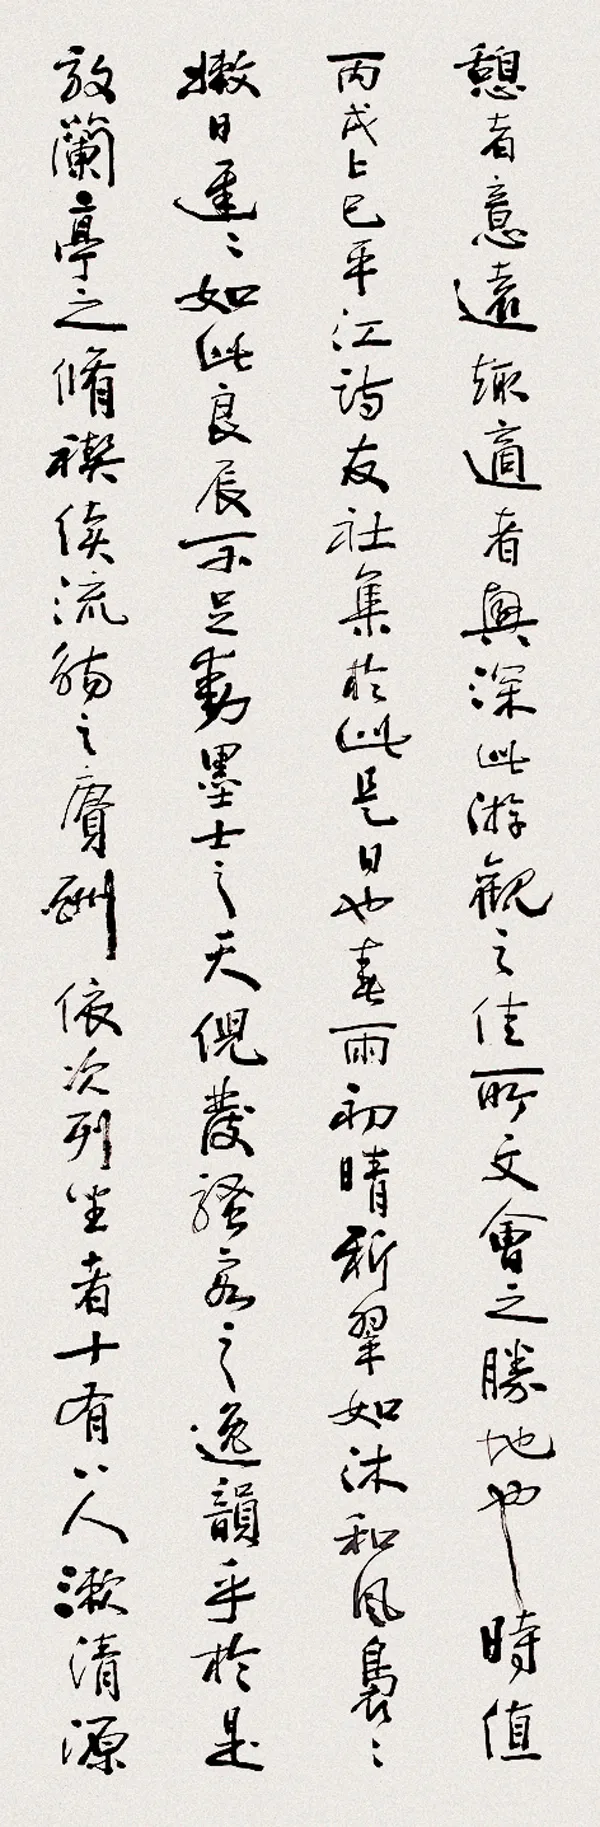 憩者意遠趣適者興深此游觀之佳所文會之勝地也時值
丙戌上巳平江詩友社集於此是日也春雨初晴新翠如沐和風裊〻
皦日遲〻如此良辰不足動墨士之天倪發騷客之逸韻乎於是
放蘭亭之脩禊續流觴之賡酬依次列坐者十有八人漱清源